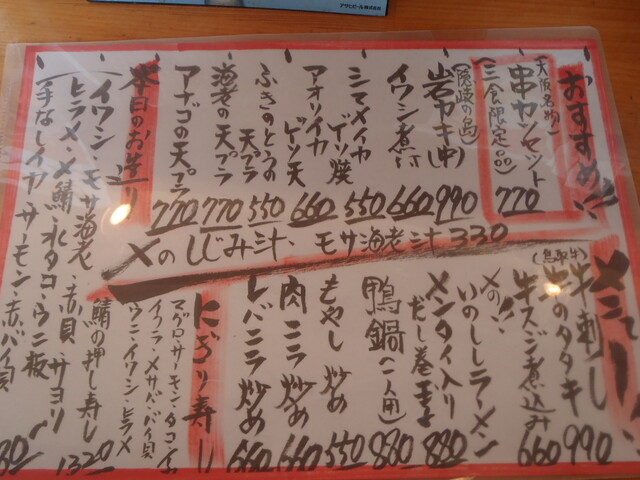 アサヒビール株式会社
おすすめ!!
(大阪名物)
串カツセット
(三食限定品)
770
(隠岐の島)
岩ガキ(中)
990
イワシ煮付
660
シマメイカ
ゲソ焼
550
アオリイカ
ゲソ天
660
ふきのとうの
天プラ
550
海老の天プラ
770
アナゴの天プラ
770
本日のお造り
イワシ モサ海老 赤貝 サヨリ
ヒラメ・〆鯖・水タコ・ウニ板
手なしイカ サーモン 赤バイ貝
〆のしじみ汁、モサ海老汁 330
メニュー
牛刺し
990
(鳥取牛)
牛のタタキ
牛スジ煮込み
660
〆の!!
いのししラーメン
メンタイ入り
だし巻玉子
880
鴨鍋(一人用)
880
もやし炒め
550
肉ニラ炒め
660
レバニラ炒め
660
にぎり寿し
マグロ・サーモン・タコ・
イクラ・メサバ・バイ貝
ウニ・イワシ・ヒラメ
鯖の押し寿し
1320